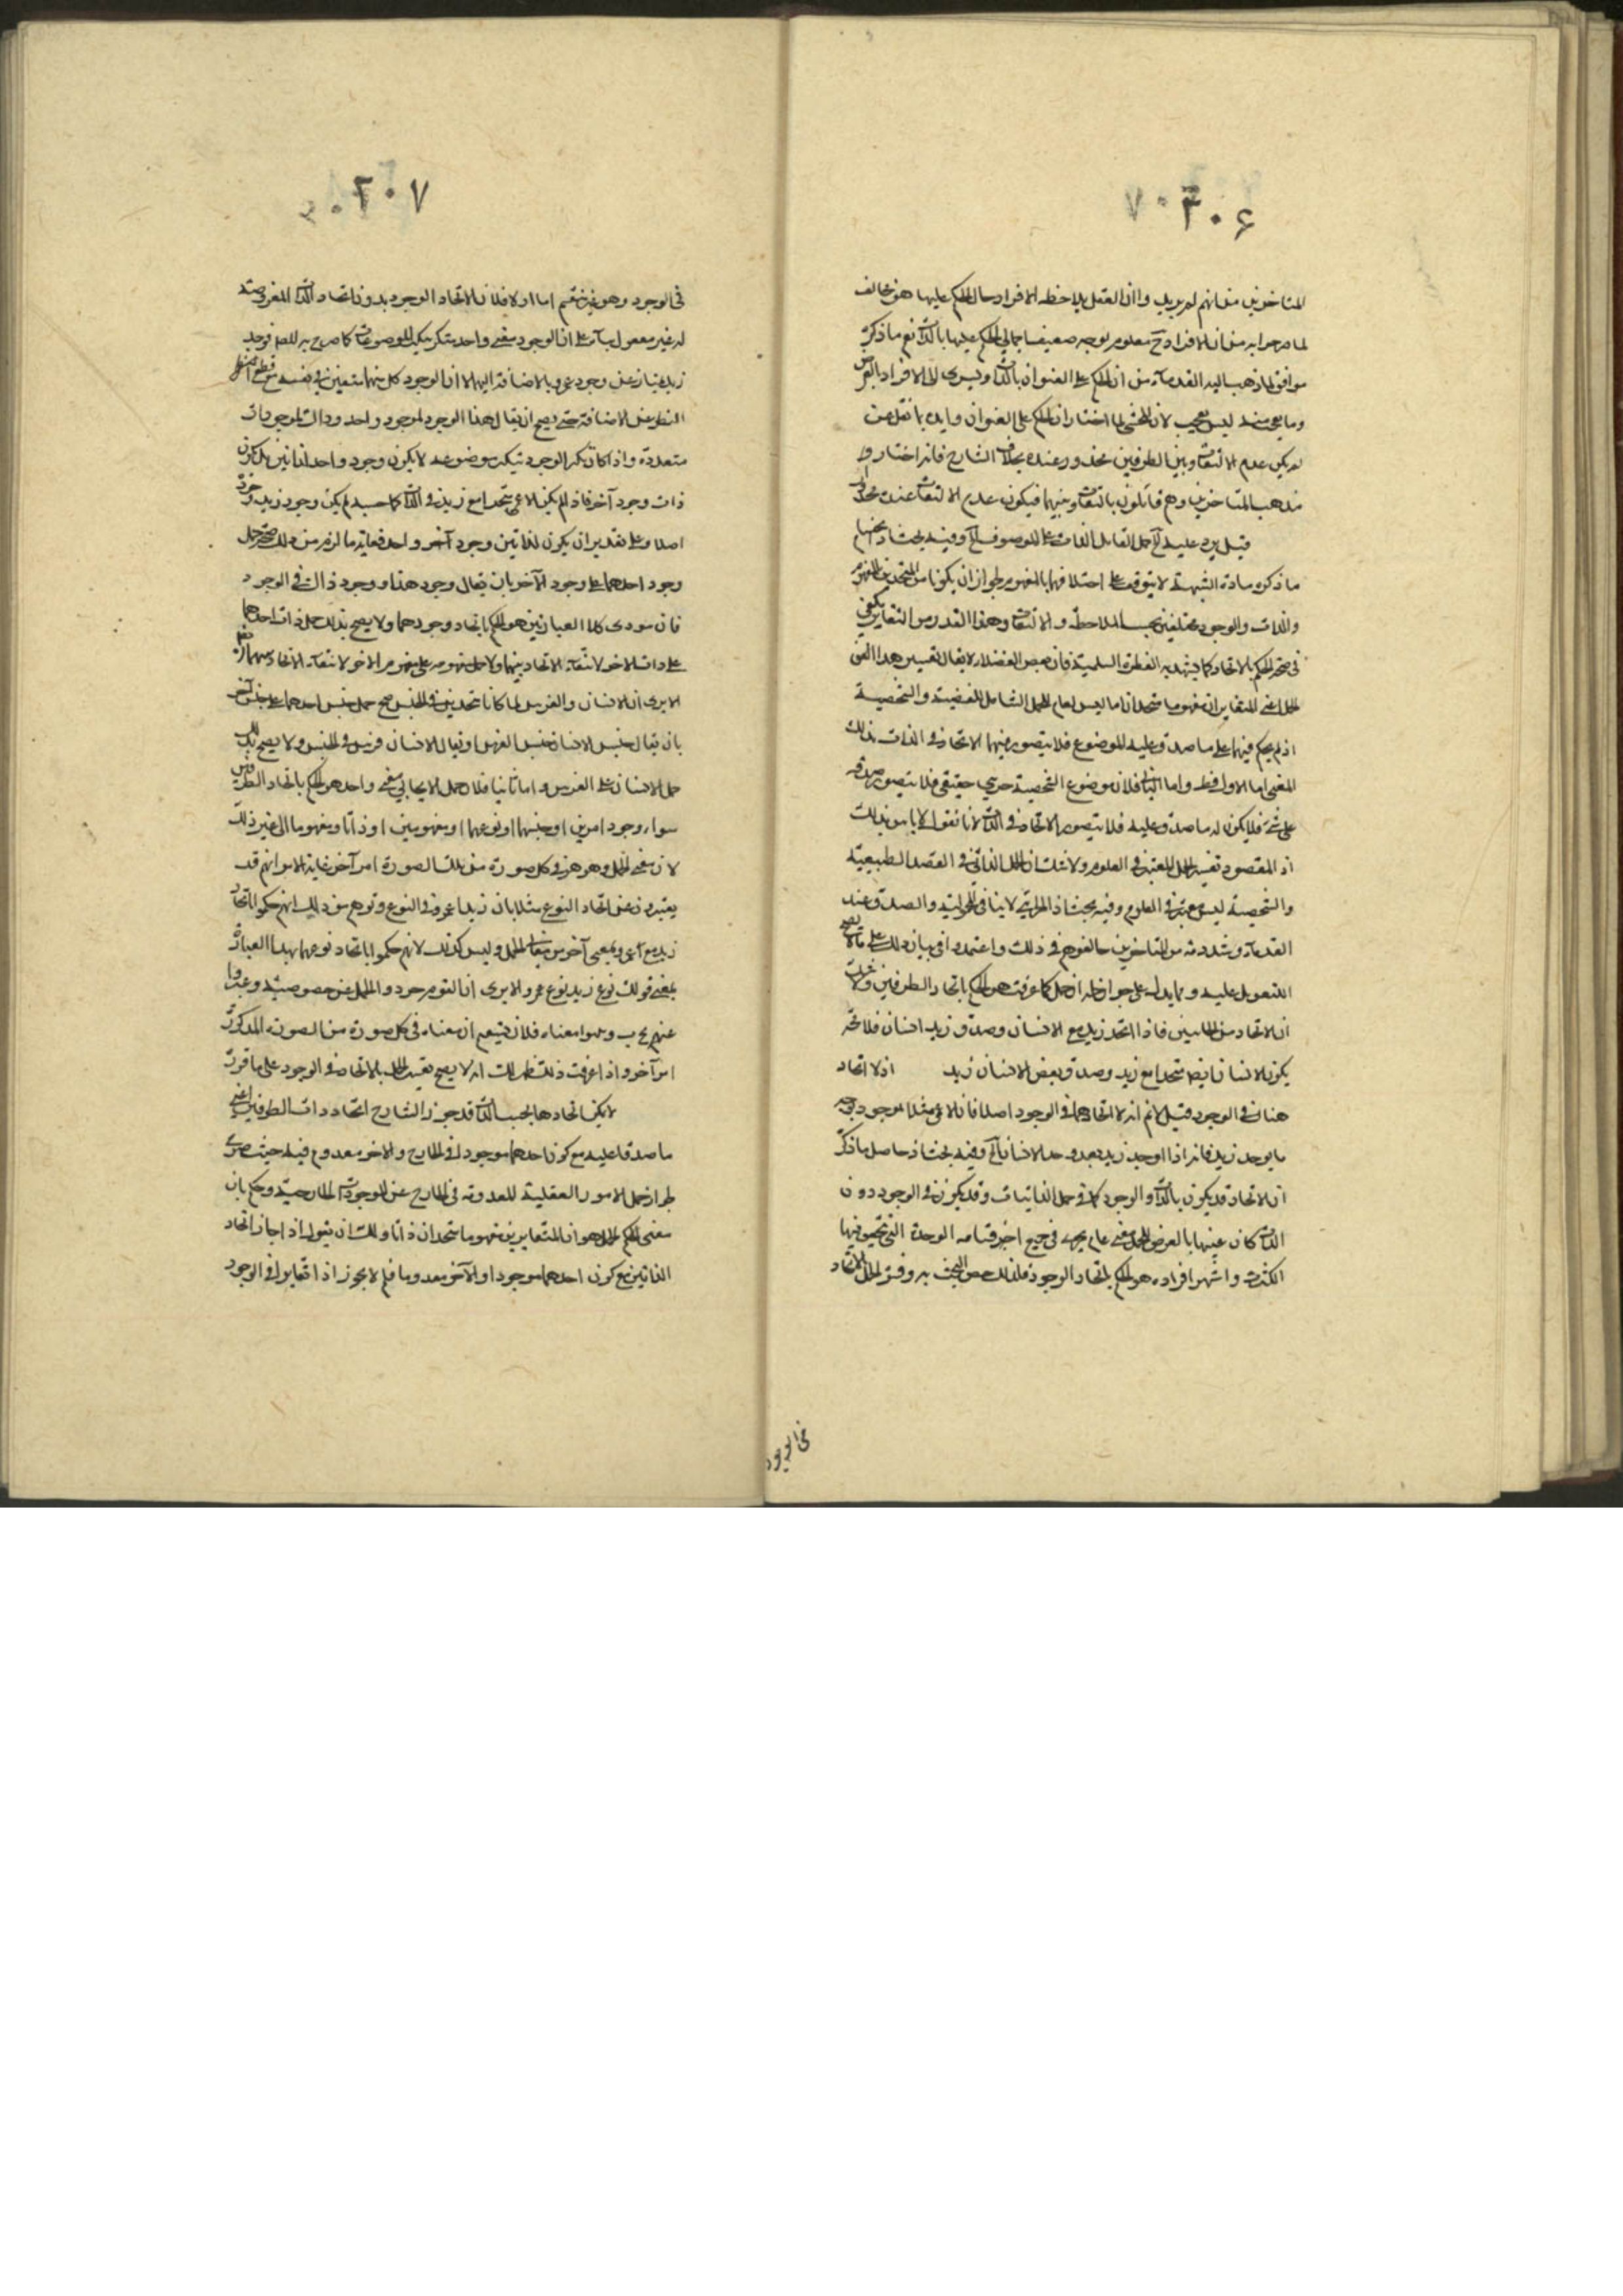 ۲۰۶
المتاخرين من انهم لم يريدوا ان العقل يلاحظ الافراد حال الحكم عليها فهو مخالف
لما صرحوا به من ان الافراد ح معلومة بوجه ضعيف اجمالى الحكم عليها بالذات نعم ما ذكره
موافق لما ذهب اليه القدماء من ان الحكم على العنوان بالذات ويسرى الى الافراد بالعرض
وما هو منه ليس بعجيب لان المحشى لما اختار ان الحكم على العنوان وايده بما نقل عن
لم يكن عدم الالتفات بين الطرفين محذور عنده بخلاف الشارح فانه اختار
مذهب المتاخرين وهم قائلون بالتفات بينهما فيكون عدم الالتفات عنده محذورا
قيل يرد عليه حمل القائل الذات على الموصوف الخ وفيه بحث اذ
ما ذكره مادة الشبهة لا يتوقف على اختلافهما بالمفهوم لجواز ان يكونا من المتحدين المفهوم
والذات والوجود مختلفين بحسب الملاحظة والالتفات وهذا القدر من التغاير يكفى
فى صحة الحكم بالاتحاد كما يشهد به الفطرة السليمة فان بعض الفضلاء لا يقال تفسير هذا المعنى
الحمل اعنى المتغايران مفهوما متحدان ما ليس بعام للحمل الشامل للطبيعية والشخصية
اذ لم يحكم فيهما على ما صدق عليه الموضوع فلا يتصور فيهما الاتحاد فى الذات بذلك
المعنى اما الاول فظ واما الثانى فلان موضوع الشخصية جزئى حقيقى فلا يتصور صدقه
على شئ فلا يكون له ما صدق عليه فلا يتصور الاتحاد فى الذات لانا نقول لا باس بذلك
اذ المقصود تفسير الحمل المعتبر فى العلوم ولا شك ان الحمل الذاتى فى القضية الطبيعية
والشخصية ليس معتبر فى العلوم وفيه بحث اذ الجزئية لا ينافى المحمولية والصدق عند
القدماء وشرذمة من المتاخرين خالفوهم فى ذلك واعتمدوا فى بيان ذلك على ما لا يصح
التعويل عليه ومما يدل على جوازه ان الحمل كما عرفت هو الحكم باتحاد الطرفين ولا شك
ان الاتحاد من الجانبين فاذا اتحد زيد مع الانسان وصدق زيد انسان فلا محة
يكون الانسان ايضا متحدا مع زيد وصدق بعض الانسان زيد اذ لا اتحاد
هناك فى الوجود قيل لانم انه لا اتحادهما فى الوجود اصلا فان الاعمى مثلا موجود بوجه
ما يوجد زيد فانه اذا اوجد زيد بعد وجد الانسان الخ وفيه بحث اذ حاصل ما ذكره
ان الاتحاد قد يكون بالذات والوجود كما فى حمل الذاتيات وقد يكون فى الوجود دون
الذات كان عينها بالعرض للحمل معنى عام يجرى فى جميع اخذ اقسامه الوحدة التى تحقق فيها
الكثرة واشهر افراده هو الحكم باتحاد الوجود فلذلك خص البحث به وفسر الحمل بالاتحاد
فى الوجود
۲۰۷
فى الوجود وهو غير مستقيم اما اولا فلان الاتحاد الوجود بدون اتحاد الذات المعروضة
له غير معقول بناء على ان الوجود معنى واحد متكثر بتكثر الموضوعات كما صرح به المص فوجد
زيد يمتاز عن وجود عمرو بالاضافة اليها لا ان الوجود كل منهما متعين فى نفسه مع قطع
النظر عن الاضافة حتى يصح ان يقال هذا الوجود لموجود واحد وذاك لموجودات
متعددة واذا كان تكثر الوجود بتكثر موضوعه لا يكون وجود واحد لذاتين بل يكون
ذات وجود آخر فاذا لم يكن الاعمى متحدا مع زيد فى الذات كما حسبه لم يكن وجود زيد وجوده
اصلا وعلى تقدير ان يكون لذاتين وجود آخر واحد فغاية ما لزم من ذلك صحة حمل
وجود احدهما على وجود الآخر بان يقال وجود هذا وجود ذاك فى الوجود
فان مودى كلا العبارتين هو الحكم باتحاد وجودهما ولا يصح بذلك حمل ذات احدهما
على ذات الاخر لانتفاء الاتحاد بينهما ولا حمل مفهومه على مفهوم الاخر لانتفاء الاتحاد بينهما
الا يرى ان الانسان والفرس لما كانا متحدين فى الجنس صح حمل جنس احدهما على جنس آخر
بان يقال جنس الانسان جنس الفرس او يقال الانسان فرس فى الجنس ولا يصح بذلك
حمل الانسان على الفرس واما ثانيا فلان حمل الايجابى معنى واحد هو الحكم باتحاد الطرفين
سواء وجود امرين او جنسهما او نوعهما او مفهومين او ذاتا ومفهوما الى غير ذلك
لان معنى الحمل وهو هو فى كل صورة من تلك الصورة امر آخر غاية الامر انهم قد
يعبرون عن اتحاد النوع مثلا بان زيدا عمرو فى النوع وتوهم من ذلك انهم حكموا باتحاد
زيد مع عمرو بمعنى آخر من معانى الحمل وليس كذلك لانهم حكموا باتحاد نوعهما بهذا العبارة
بمعنى قولك نوع زيد نوع عمرو الا يرى ان القوم جردوا الحمل عن خصوصيته وعبروا
عنهم ج ب وبينوا معناه فلان يتبعهم ان معناه فى كل صورة من الصورة المذكورة
امر آخر واذا عرفت ذلك ظهر لك انه لا يصح تفسير الحمل بالاتحاد فى الوجود على ما قرره
لا يكن اتحادها بحسب الذات قد جوز الشارح اتحاد ذات الطرفين اعنى
ما صدقا عليه مع كون احدهما موجودا فى الخارج والاخر معدوم فيه حيث صرح
بجواز حمل الامور العقلية المعدومة فى الخارج عن الموجودات الخارجية وحكم بان
معنى الحكم بالحمل هو ان المتغايرين مفهوما متحدان ذاتا ولك ان تقول اذا جاز اتحاد
الذاتين مع كون احدهما موجودا والآخر معدوما فلم لا يجوز اذا تغايرا فى الوجود